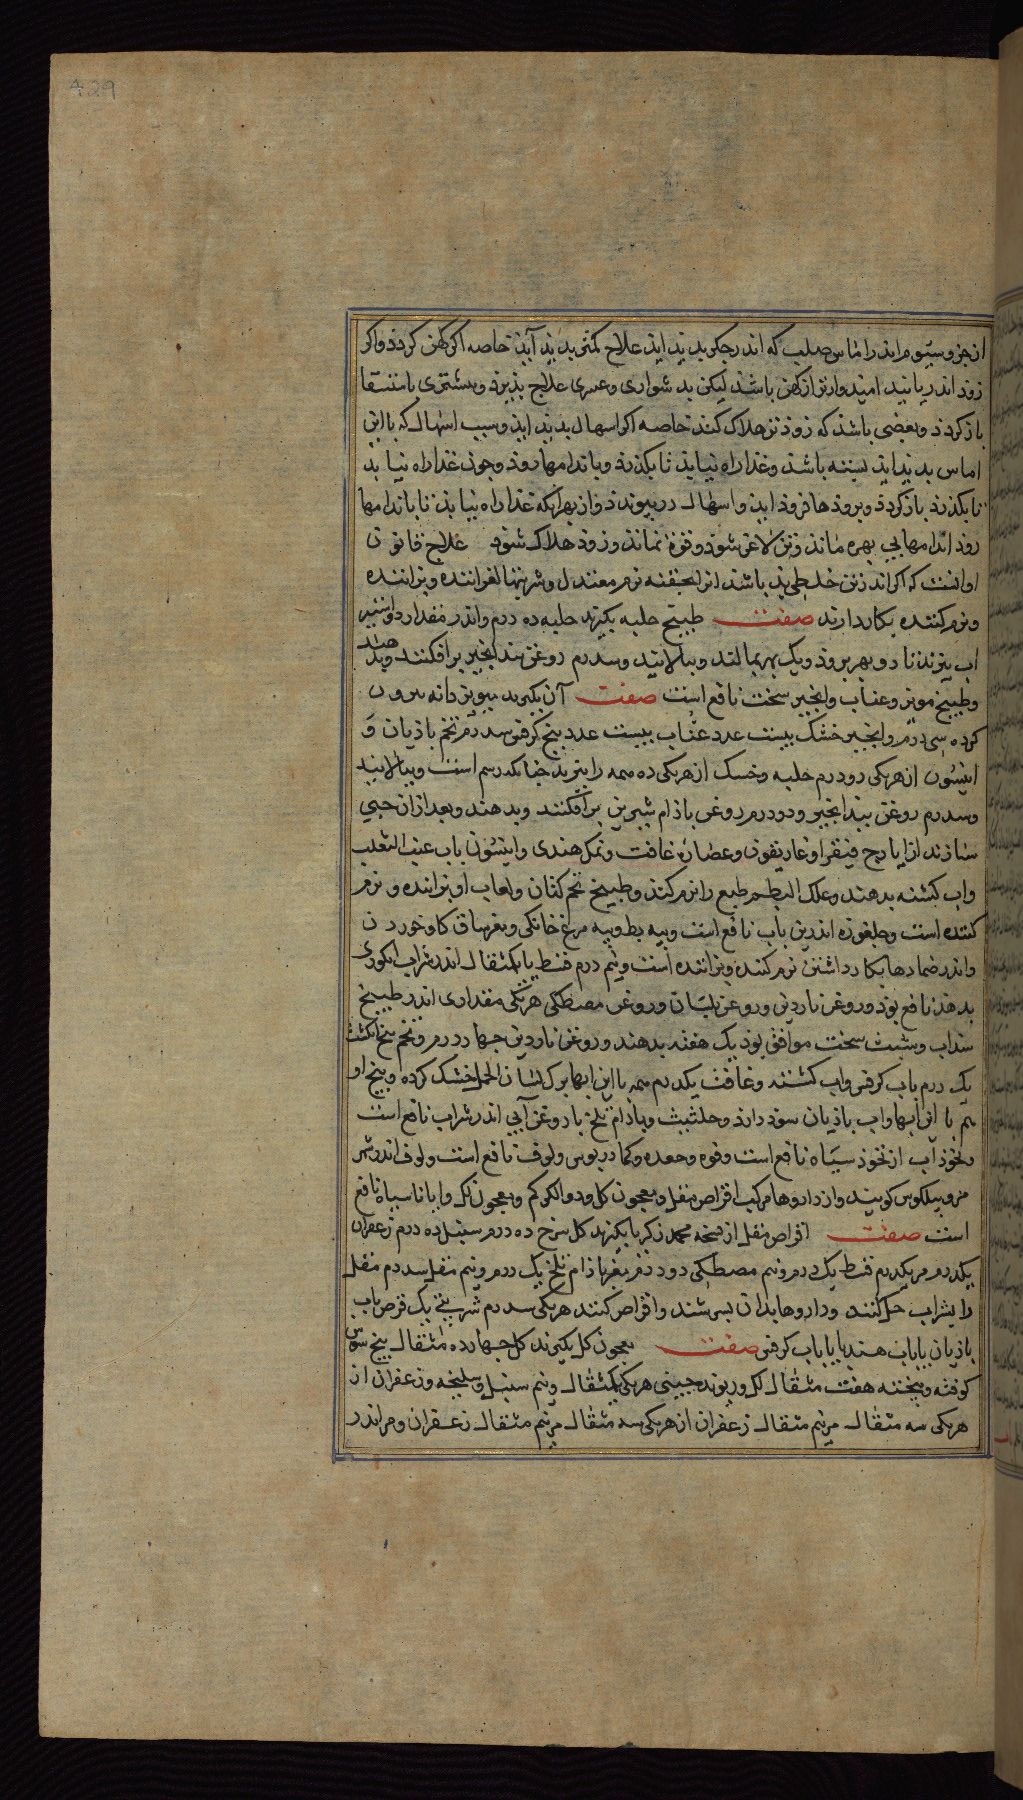 429
از جزو سیوم اندر اماس صلب که اندر جکر بدید اید علاج کمتر بدید آید خاصه اکر کهن کردد و اکر
زود اندر یابند امیدوارتر از کهن باشد لیکن بدشواری و عسری علاج پذیرد و بیشتری باستسقا
باز کردد و بعضی باشد که زودتر هلاک کند خاصه اکر اسهال بدید اید و سبب اسهال که با این
اماس بدید اید بسته باشد و غذا راه نیابد تا بکذرد و باندامها رود و چون غذا راه نیابد
تا بکذرد باز کردد و برودها فرود اید و اسهال در پیوندد و از بهر انکه غذا راه نیابد تا باندامها
رود اندامها بی بهره ماند و تن لاغر شود و قوة نماند و زود هلاک شود علاج قانون
او انست که اکر اندر تن خلطی بد باشد انرا بحقنه نرم معتدل و شربتها لغزاننده و پزاننده
و نرم کننده بکار دارند صفت طبیخ حلبه بکیرند حلبه ده درم و اندر مقدار دو استیر
اب بپزند تا دو بهر برود و یک بهر بماند و بپالایند و سه درم روغن بیدانجیر برافکنند و بدهند
و طبیخ مویز و عناب و انجیر سخت نافع است صفت آن بکیرند مویز دانه بیرون
کرده سی درم و انجیر خشک بیست عدد عناب بیست عدد بیخ کرفس سه درم تخم بادیان و
انیسون از هر یکی دو درم حلبه و خسک از هر یکی ده همه را بپزند چنانکه رسم است و بپالایند
و سه درم روغن بیدانجیر و دو درم روغن بادام شیرین برافکنند و بدهند و بعد از ان حبی
سازند از ایارج فیقرا و غاریقون و عصاره غافت و نمک هندی و انیسون باب عنب الثعلب
و اب کشنه بدهند و علک البطم طبع را نرم کند و طبیخ تخم کتان و لعاب او پزاننده و نرم
کننده است و جلغوزه اندرین باب نافع است و پیه بط و پیه مرغ خانکی و مغز ساق کاو خوردن
و اندر ضمادها بکار داشتن نرم کننده و پزاننده است و نیم درم قسط یا یکثقال اندر شراب انکوری
بدهند نافع بود و روغن ناردین و روغن بلسان و روغن مصطکی هر یکی مقداری اندر طبیخ
سداب و شبت سخت موافق بود یک هفته بدهند و روغن ناردین چهار درم و تخم پنج انکشت
یک درم باب کرفس و اب کشنه و غافت یکدرم همه با این ابها برک لسان الحمل خشک کرده و بیخ او
هم با این ابها و اب بادیان سود دارد و حلتیت و بادام تلخ با روغن آبی اندر شراب نافع است
و نخود آب از نخود سیاه نافع است و فوه و جعده و کمادریوس و لوف نافع است و لوف اندر شهر
مرو پیلکوس کویند و از داروها مرکب اقراص مقل و معجون کل و دوالکرکم و معجون لک و اباناسیا نافع
است صفت اقراص مقل از نسخه محمد زکریا بکیرند کل سرخ ده درم سنبل ده درم زعفران
یکدرم مر یکدرم قسط یک درم و نیم مصطکی دو درم مغز بادام تلخ یک درم و نیم مقل سه درم مقل
را بشراب حل کنند و داروها بدان بسرشند و اقراص کنند هر یکی سه درم شربتی یک قرص باب
بادیان یا باب هندبا یا باب کرفس صفت معجون کل بکیرند کل چهارده مثقال بیخ سوس
کوفته و پیخته هفت مثقال لک و ریوند چینی هر یکی یکثقال و نیم سنبل و سلیخه و زعفران از
هر یکی سه مثقال مر نیم مثقال زعفران از هر یکی سه مثقال مر نیم مثقال زعفران و مر اندر